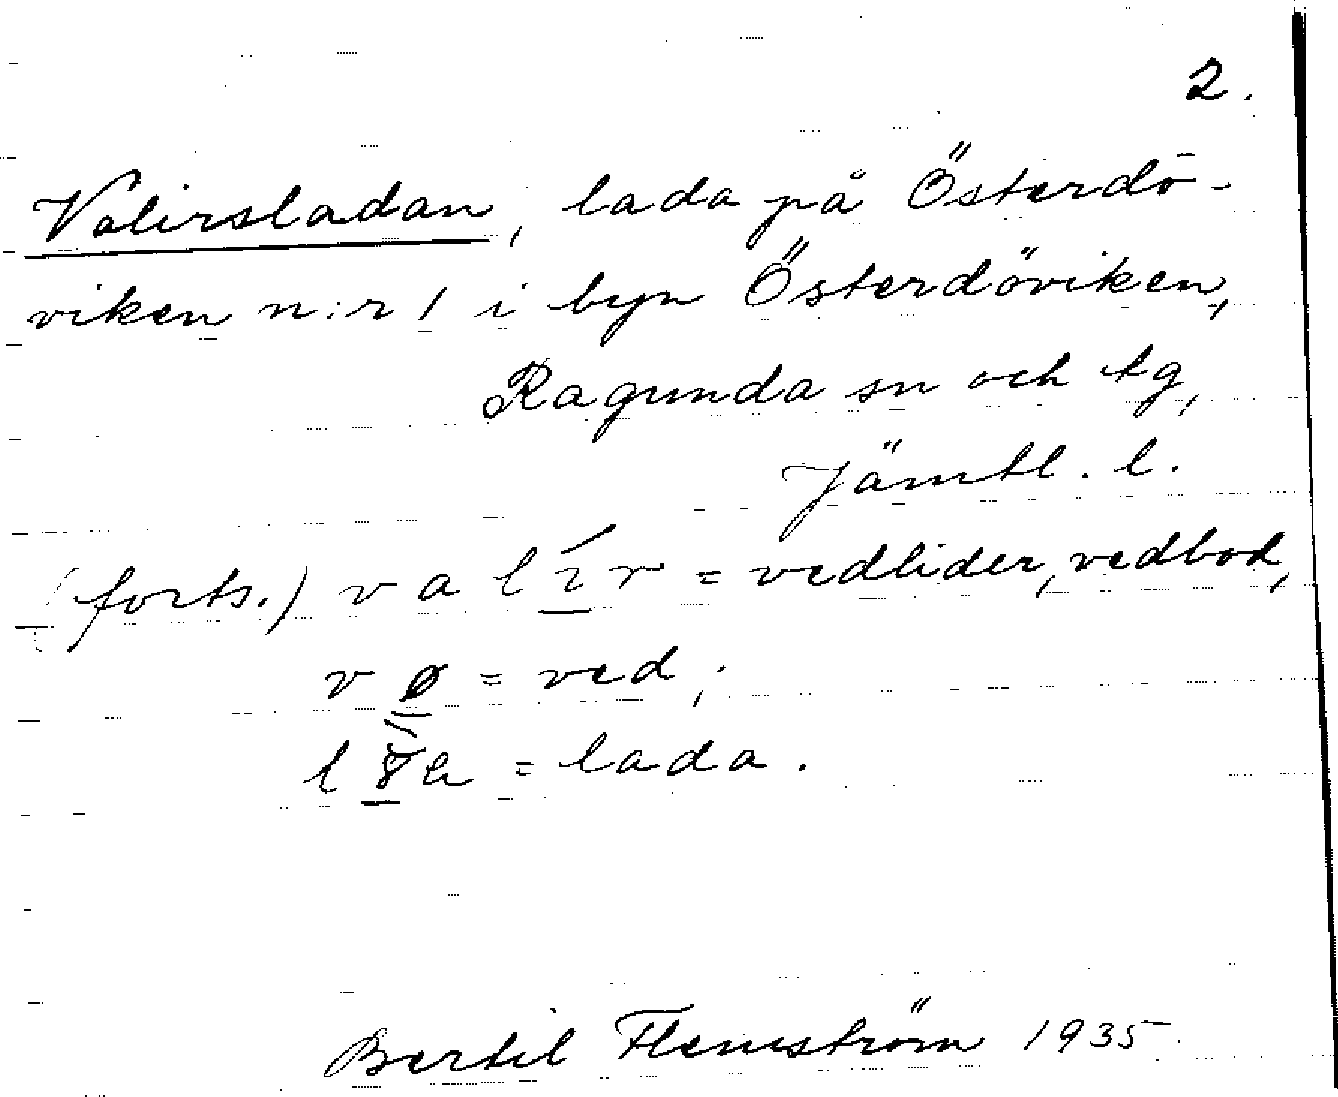 2.
Valirsladan, lada på Österdö-
viken n:r 1 i byn Österdöviken,
Ragunda sn och tg,
Jämtl. l.
(forts.) v a l í r = vedlider, vedbod,
v ø = ved;
l a = lada.
Bertil Flemström 1935